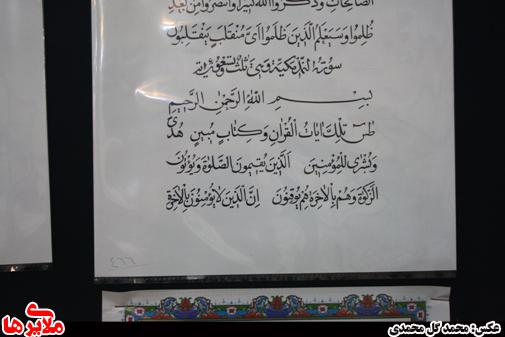 الصالحات وذكروا الله كثيرا وانتصروا من بعد
ظلموا وسيعلم الذين ظلموا اى منقلب ينقلبون
سورة النمل مكية وهي ثلث وتسعون آية
بسم الله الرحمن الرحيم
طس تلك ايات القران وكتاب مبين هدى
وبشرى للمؤمنين الذين يقيمون الصلوة ويؤتون
الزكوة وهم بالاخرة هم يوقنون ان الذين لا يؤمنون بالاخرة
۴۶۶
ملایری ها
عکس: محمد گل محمدی